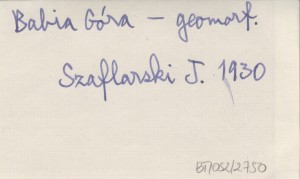 Babia Góra – geomorf.
Szaflarski J. 1930
BT/052/2750